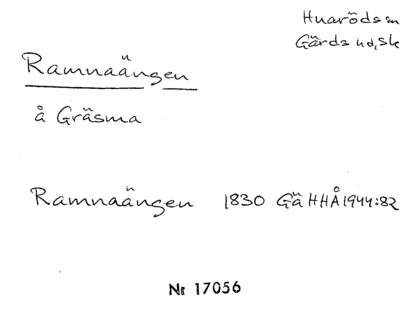 Huaröds sn
Gärds hd, Sk
Ramnaängen
å Gräsma
Ramnaängen 1830 Gä HHÅ 1944:82
Nr 17056